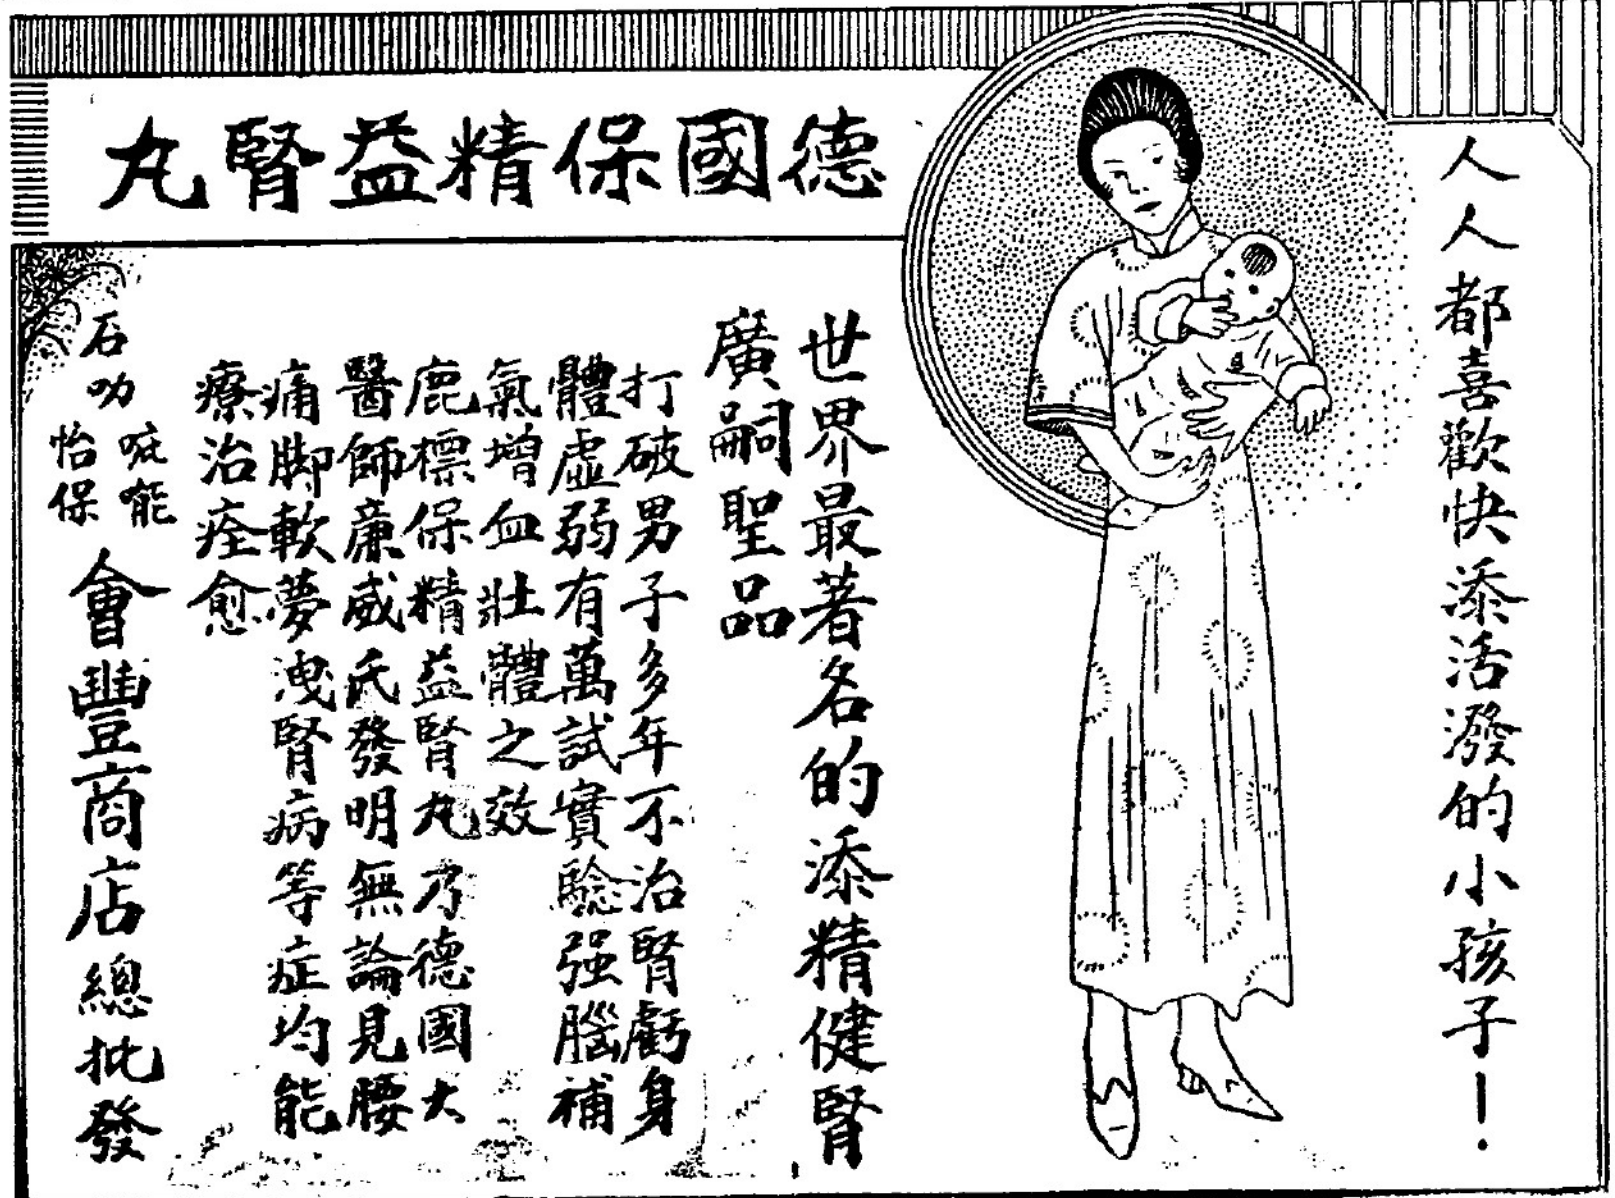 德國保精益腎丸
人人都喜歡快添活潑的小孩子！
世界最著名的添精健腎
廣嗣聖品
打破男子多年不治腎虧身
體虛弱有萬試實驗强腦補
氣增血壯體之效
鹿標保精益腎丸乃德國大
醫師廉威氏發明無論見腰
痛脚軟夢洩腎病等症均能
療治痊愈
石叻
吡能
怡保
會豐商店總批發